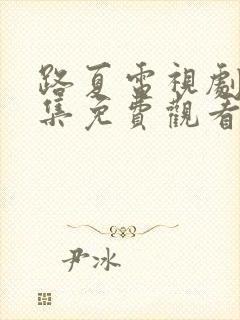 路夏雷視劇
集免費觀看
尹冰